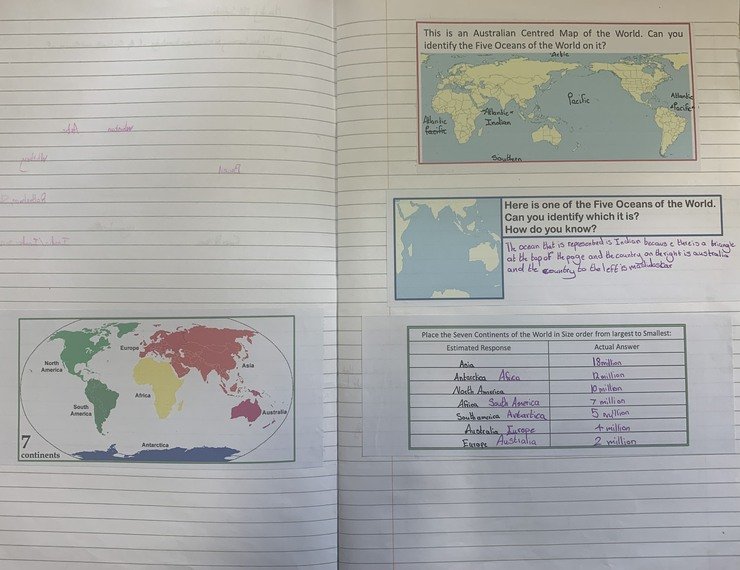 This is an Australian Centred Map of the World. Can you
identify the Five Oceans of the World on it?
Pacific
Atlantic
Pacific
Atlantic
Indian
Atlantic
Pacific
Southern
Here is one of the Five Oceans of the World.
Can you identify which it is?
How do you know?
The ocean that is represented is Indian because there is a triangle
at the top of the page and the country on the right is australia
and the country to the left is
North
America
Europe
Asia
Africa
South
America
Australia
Antarctica
7
continents
Place the Seven Continents of the World in Size order from largest to Smallest:
Estimated Response Actual Answer
Asia 18 million
Antarctica Africa 12 million
North America 10 million
Africa South America 7 million
South america 5 million
Australia Europe 4 million
Europe Australia 2 million